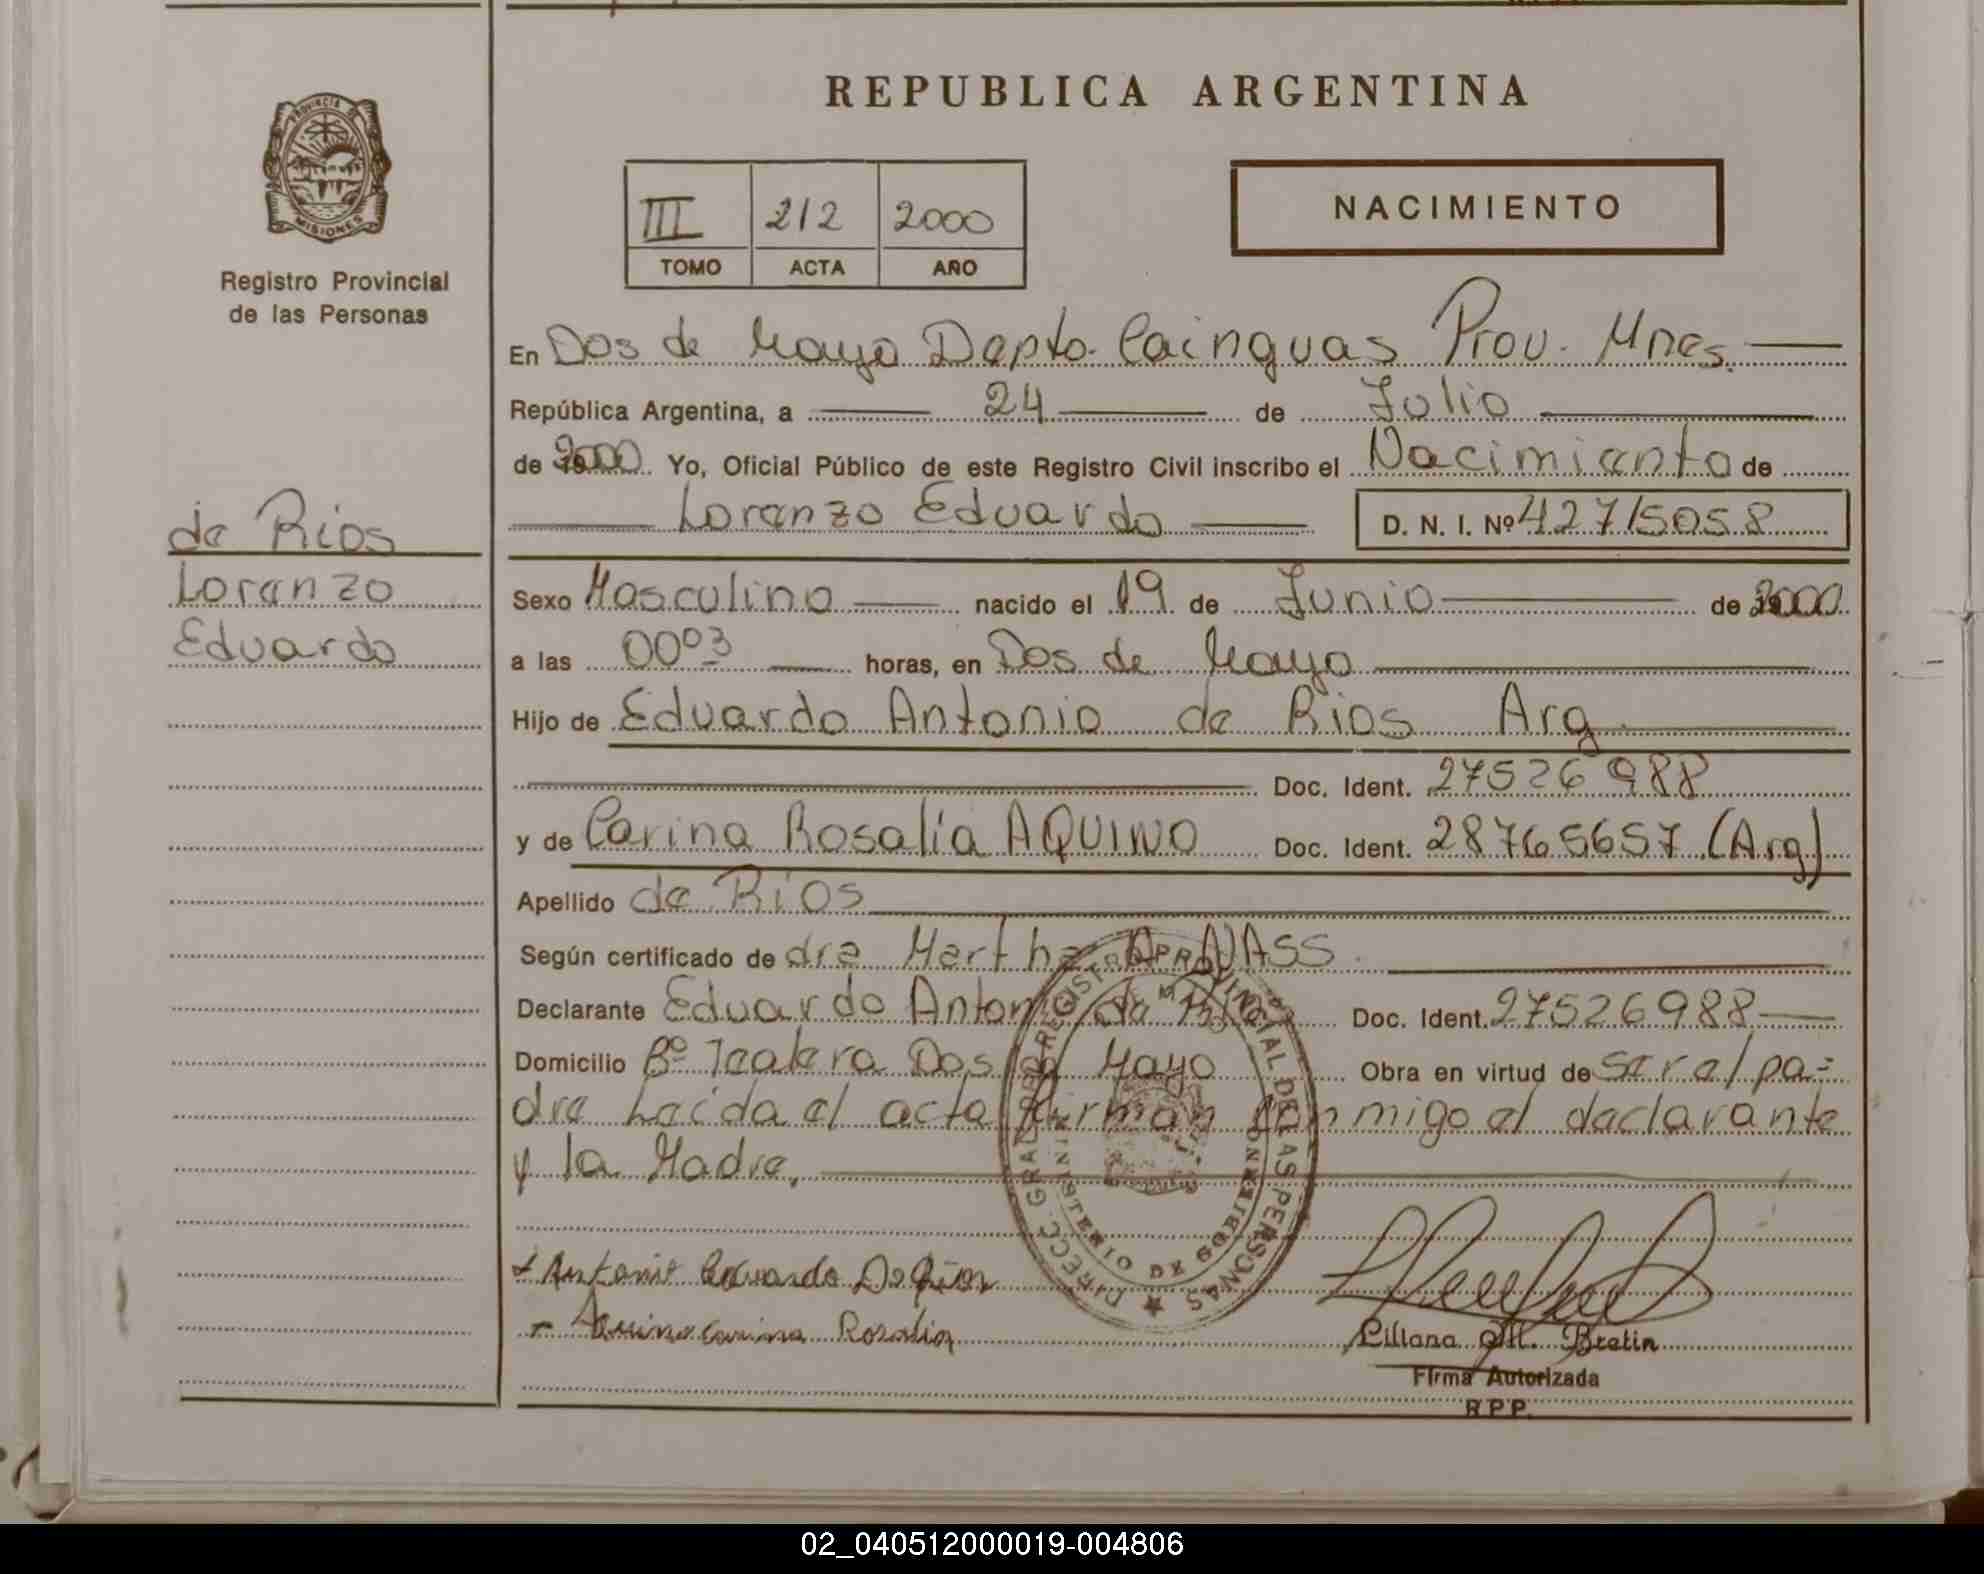 REPUBLICA ARGENTINA
PROVINCIA DE
MISIONES
Registro Provincial
de las Personas
III 212 2000
TOMO ACTA AÑO
NACIMIENTO
En Dos de Mayo Depto. Cainguas Prov. Mnes.
República Argentina, a 24 de Julio
de 2000 Yo, Oficial Público de este Registro Civil inscribo el Nacimiento de
Lorenzo Eduardo D. N. I. Nº 42715058
de Rios
Lorenzo
Eduardo
Sexo Masculino nacido el 19 de Junio de 2000
a las 00º³ horas, en Dos de Mayo
Hijo de Eduardo Antonio de Rios Arg
Doc. Ident. 27526988
y de Carina Rosalía AQUINO Doc. Ident. 28765657 (Arg)
Apellido de Rios
Según certificado de dra Martha A. NASS
Declarante Eduardo Antonio de Rios Doc. Ident. 27526988
Domicilio Bº Tealera Dos de Mayo Obra en virtud de ser el pa=
dre Leida el acta firman conmigo el declarante
y la Madre,
DIRECC. GRAL. DEL REGISTRO PROVINCIAL DE LAS PERSONAS
MINISTERIO DE GOBIERNO
Antonio Eduardo De Rios
Aquino Carina Rosalia
Liliana M. Bretin
Firma Autorizada
R.P.P.
02_040512000019-004806